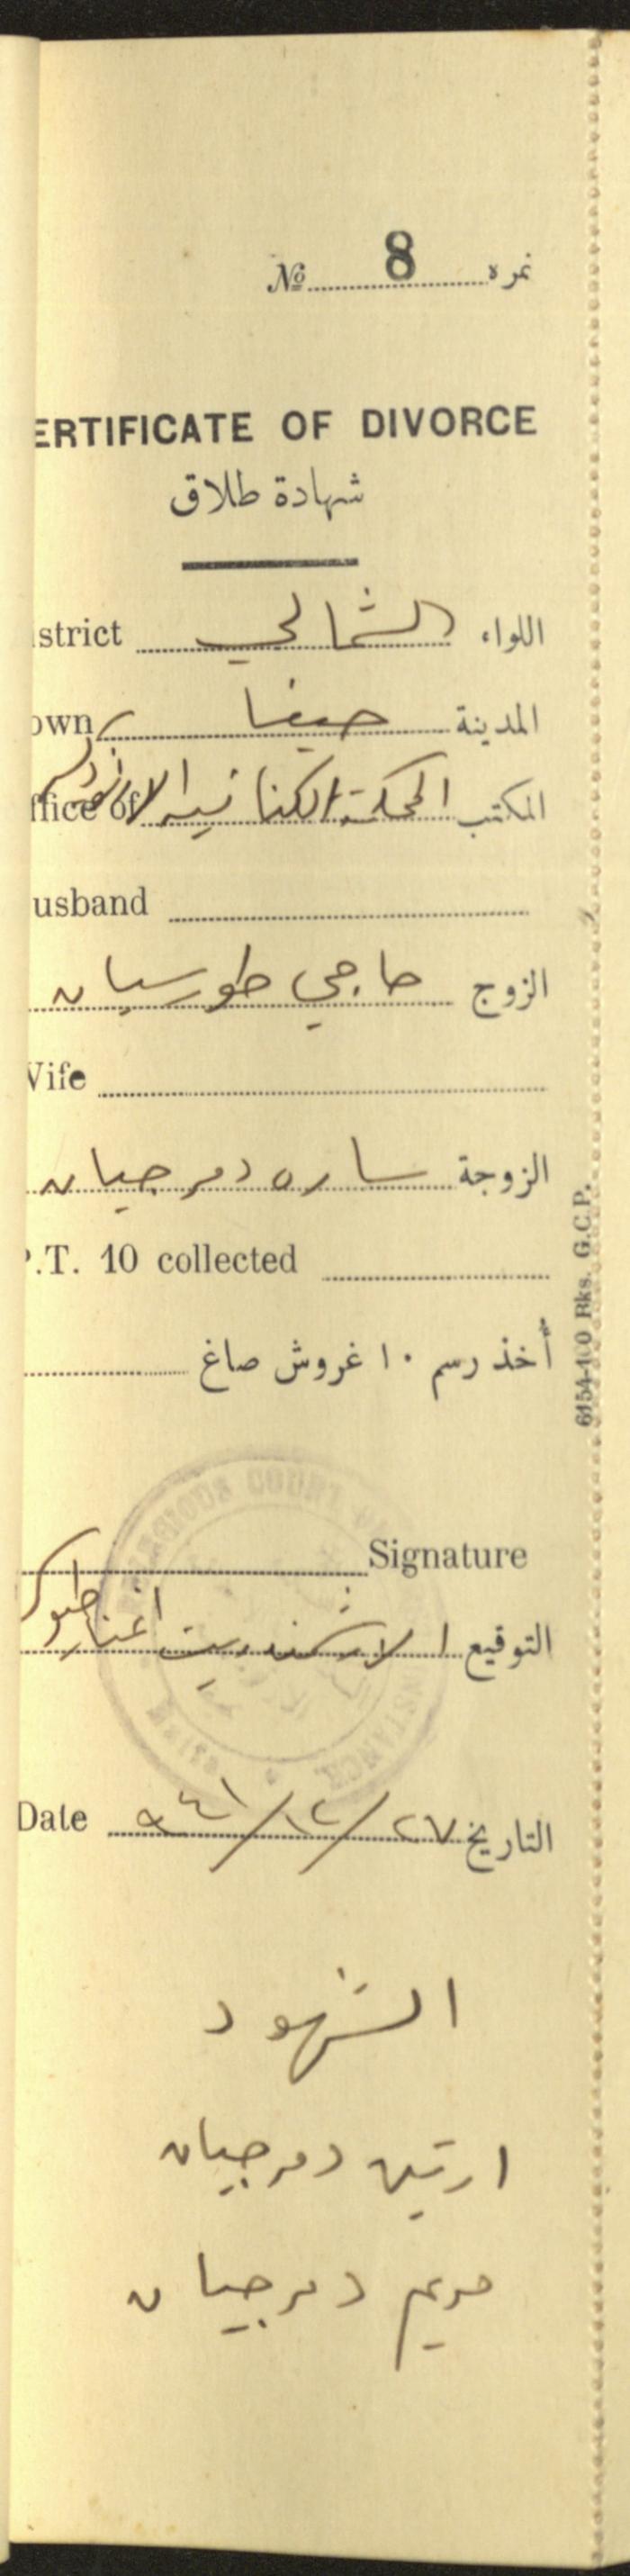 № 8 نمره
ERTIFICATE OF DIVORCE
شهادة طلاق
istrict الشمالي اللواء
own حيفا المدينة
ffice of المحكمة الكنائسيه المكتب
usband
حاجي طورسيان الزوج
Vife
ساره دمرجيان الزوجة
.T. 10 collected
أخذ رسم ١٠ غروش صاغ
6154-100 Bks. G.C.P.
Signature
التوقيع الارشمندريت
Date ٢٧/١٢/٩٤١ التاريخ
الشهود
ارتين دمرجيان
مريم دمرجيان